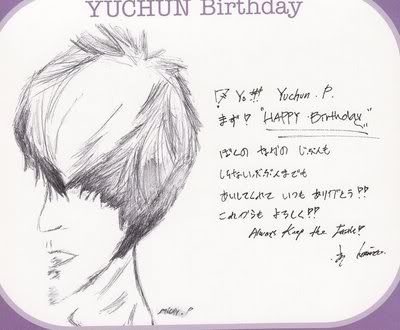 YUCHUN Birthday
Yo !!! Yuchun . P.
まず!? "HAPPY Birthday"
ぼくの なかの じぶんも
しらないぶぶんまでも
あいしてくれて いつも ありがとう!?
これからも よろしく!?
Always Keep the Faith!?
By
MICKY . P